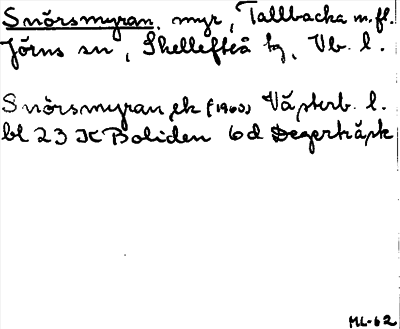 Snörsmyran, myr, Tallbacka m.fl.
Jörns sn, Skellefteå tg, Vb. l.
Snörsmyran ek (1960) Västerb. l.
bl 23 K Boliden 6d Degerträsk
ML-62